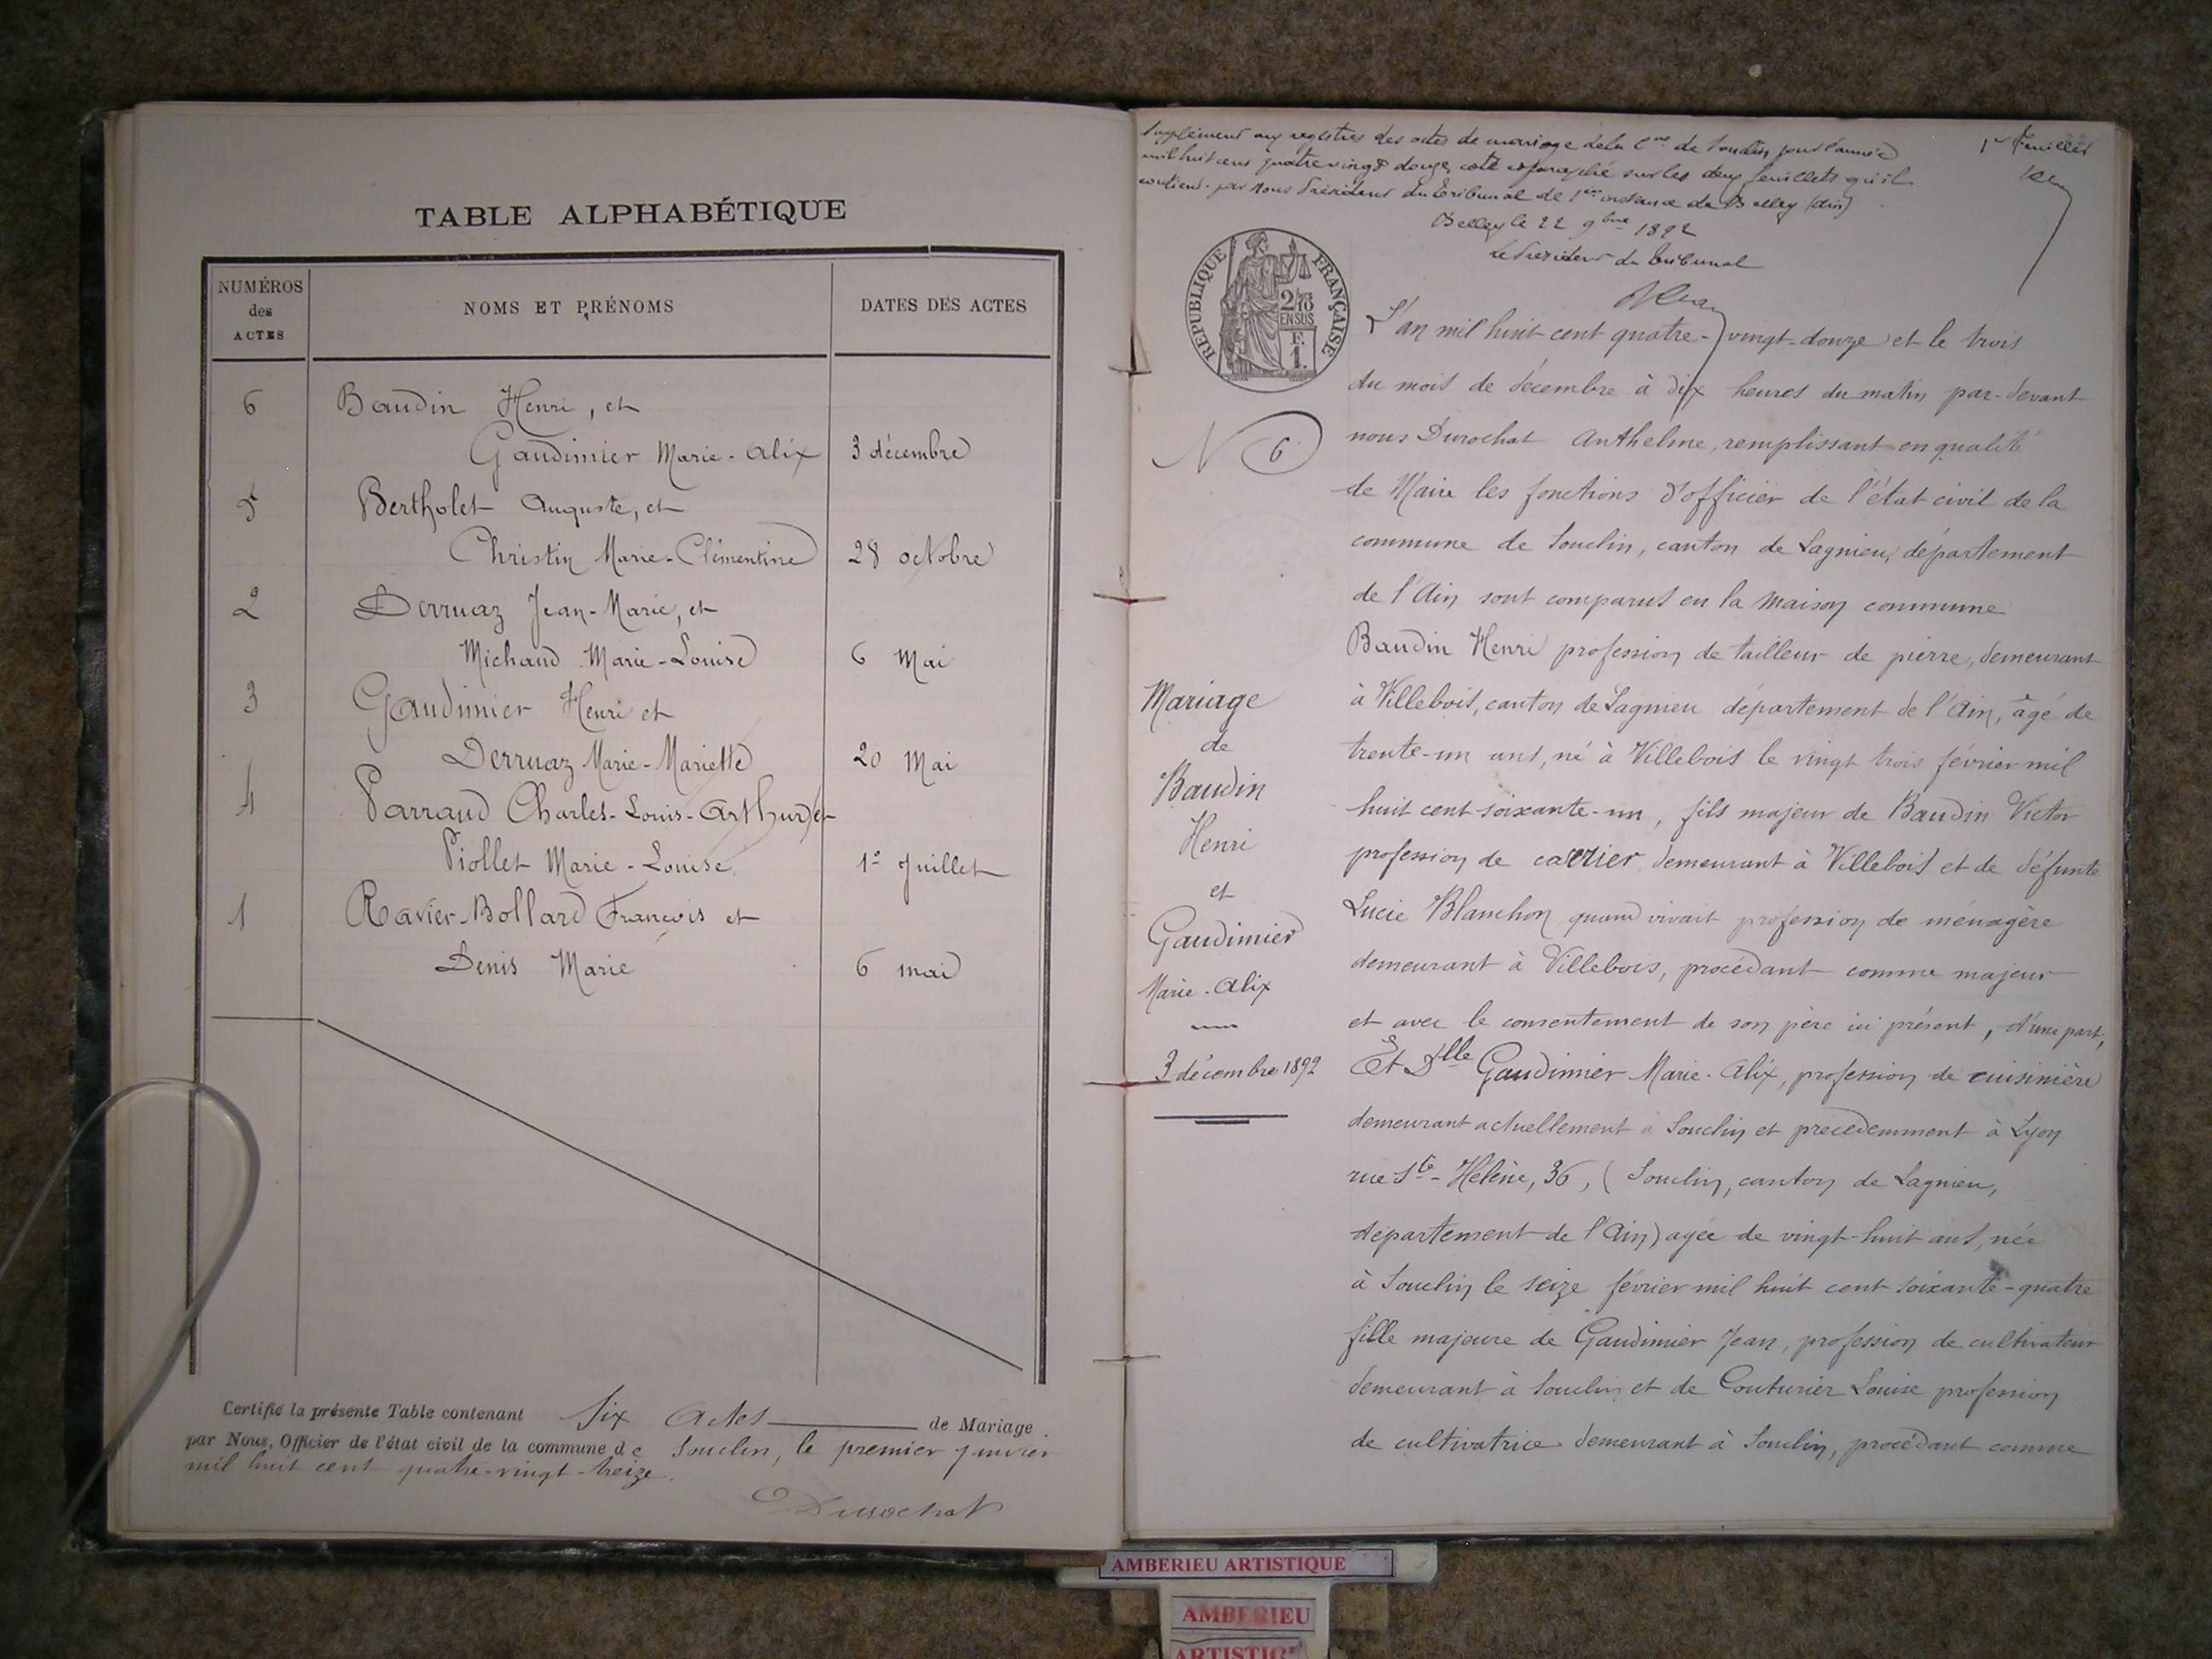 TABLE ALPHABÉTIQUE
NUMÉROS
des
ACTES
NOMS ET PRÉNOMS
DATES DES ACTES
6 Baudin Henri, et
Gaudimier Marie-Alix 3 décembre
5 Bertholet Auguste, et
Christin Marie-Clémentine 28 octobre
2 Derruaz Jean-Marie, et
Michaud Marie-Louise 6 Mai
3 Gaudimier Henri et
Derruaz Marie-Mariette 20 Mai
4 Parraud Charles-Louis-Arthur, et
Piollet Marie-Louise 1er Juillet
1 Ravier-Bollard François et
Denis Marie 6 mai
Certifié la présente Table contenant Six Actes de Mariage
par Nous, Officier de l'état civil de la commune de Souclin, le premier janvier
mil huit cent quatre-vingt-treize.
Durochat
1er feuillet
Supplément aux registres des actes de mariage de la Cne de Souclin pour l'année
mil huit cent quatre vingt douze, coté et paraphé sur les deux feuillets qu'il
contient par Nous Président du Tribunal de 1ère instance de Belley (Ain)
Belley le 22 9bre 1892
Le Président du Tribunal
RÉPUBLIQUE FRANÇAISE
2/10
EN SUS
F.
1.
L'an mil huit cent quatre-vingt-douze et le trois
du mois de décembre à dix heures du matin par-devant
N 6
nous Durochat Anthelme, remplissant en qualité
de Maire les fonctions d'officier de l'état civil de la
commune de Souclin, canton de Lagnieu, département
de l'Ain sont comparus en la maison commune
Baudin Henri profession de tailleur de pierre, demeurant
à Villebois, canton de Lagnieu département de l'Ain, âgé de
trente-un ans, né à Villebois le vingt trois février mil
huit cent soixante-un, fils majeur de Baudin Victor
profession de carrier, demeurant à Villebois et de défunte
Lucie Blanchon quand vivait profession de ménagère
demeurant à Villebois, procédant comme majeur
et avec le consentement de son père ici présent, d'une part,
Et Dlle Gaudimier Marie-Alix, profession de cuisinière
demeurant actuellement à Souclin et précédemment à Lyon
rue Ste-Hélène, 36, (Souclin, canton de Lagnieu,
département de l'Ain) agée de vingt-huit ans, née
à Souclin le seize février mil huit cent soixante-quatre
fille majeure de Gaudimier Jean, profession de cultivateur
demeurant à Souclin et de Couturier Louise profession
de cultivatrice demeurant à Souclin, procédant comme
Mariage
de
Baudin
Henri
et
Gaudimier
Marie-Alix
3 décembre 1892
AMBERIEU ARTISTIQUE
AMBERIEU
ARTISTIQ